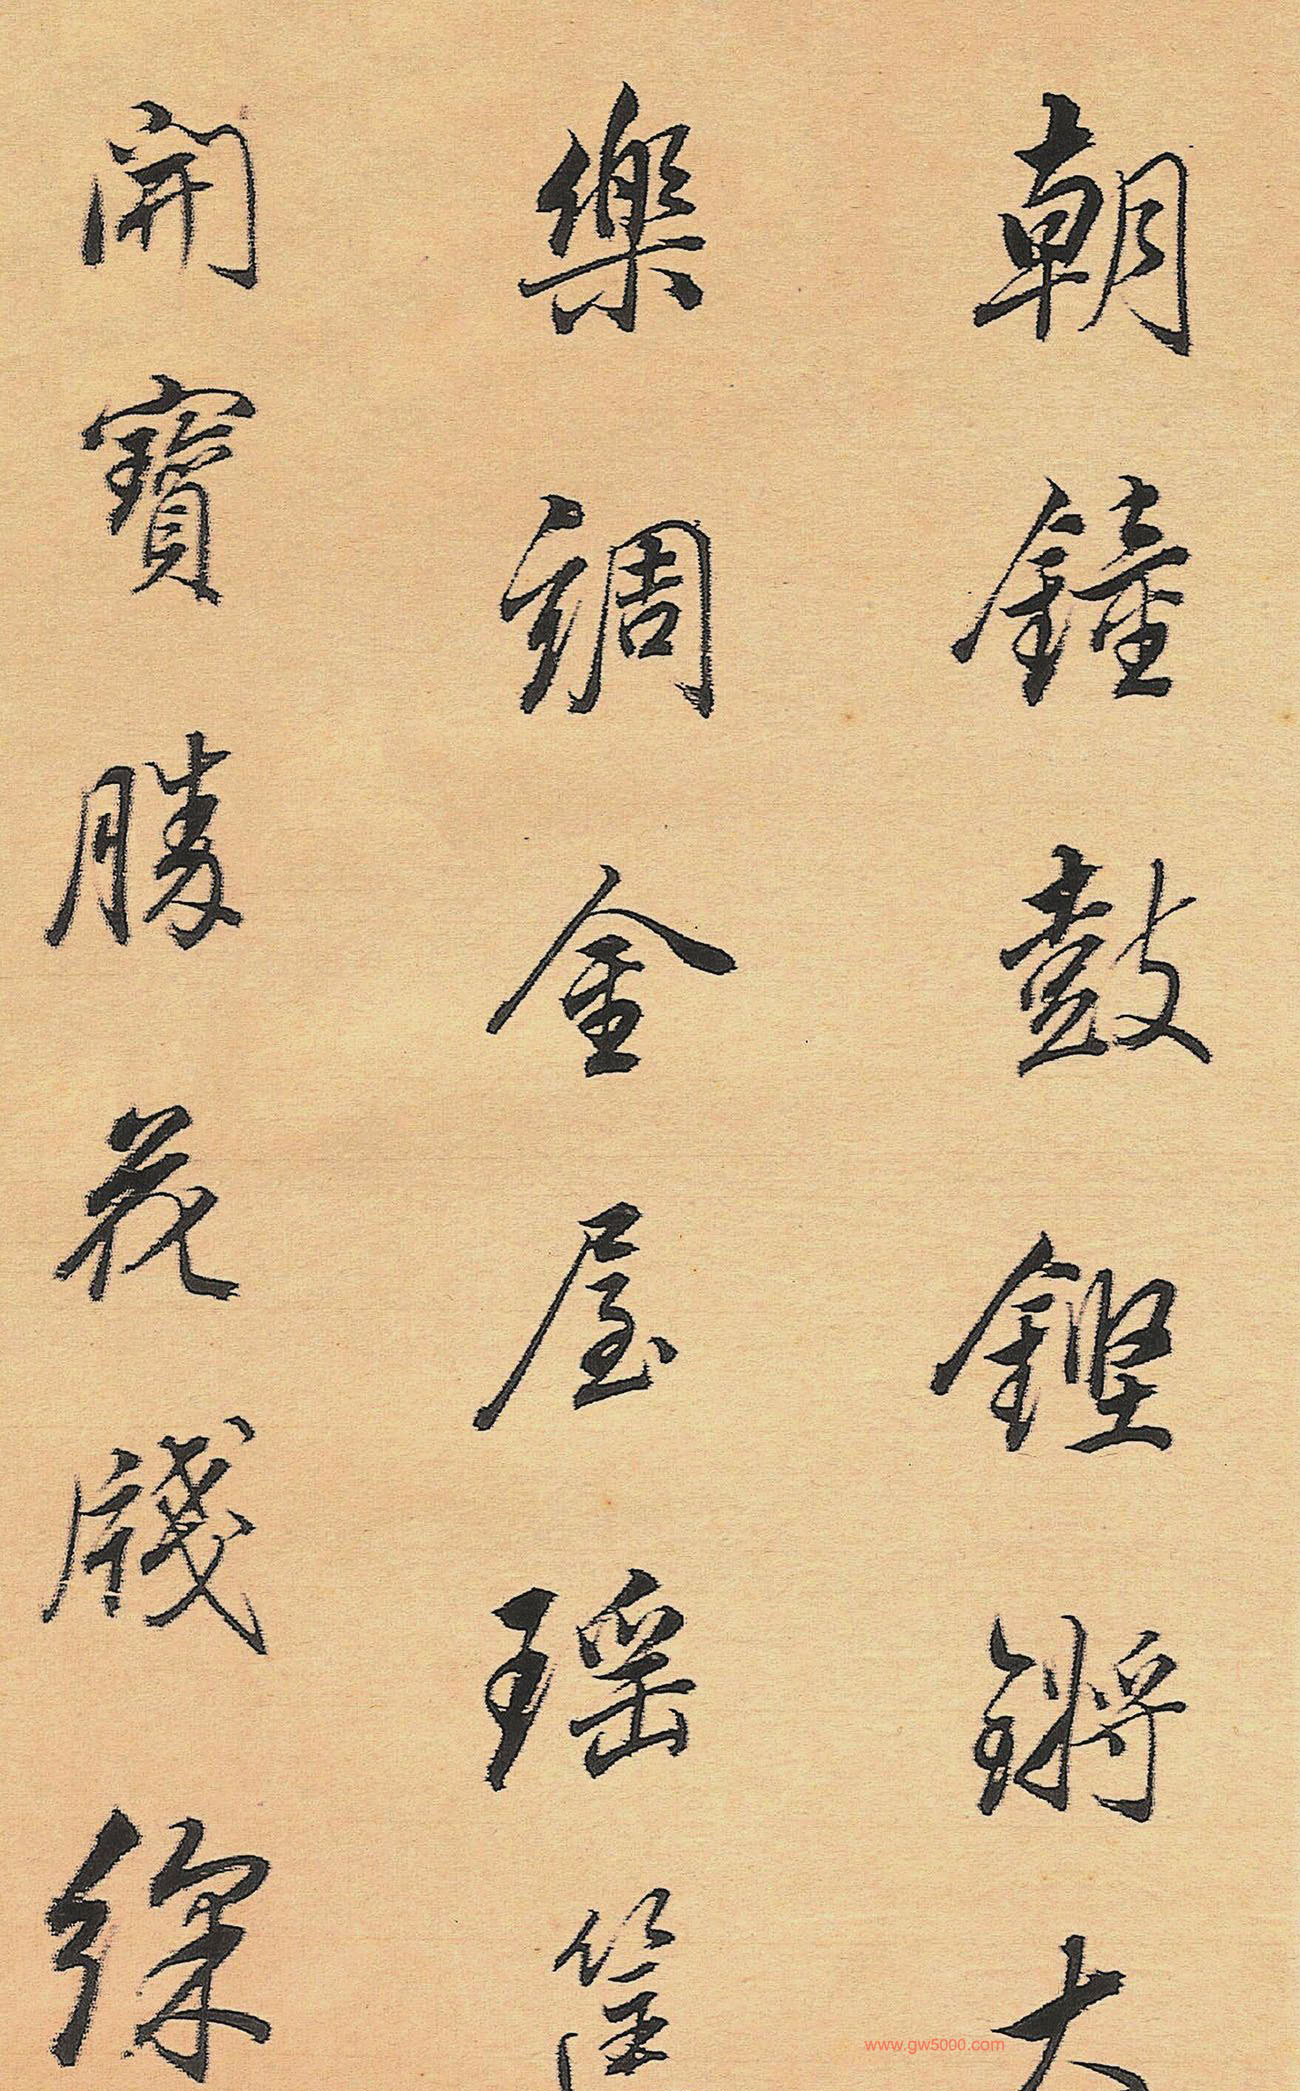 朝鐘鼓鏗鏘大
樂調金屋瑤筐
開寶勝花牋綵
www.gw5000.com